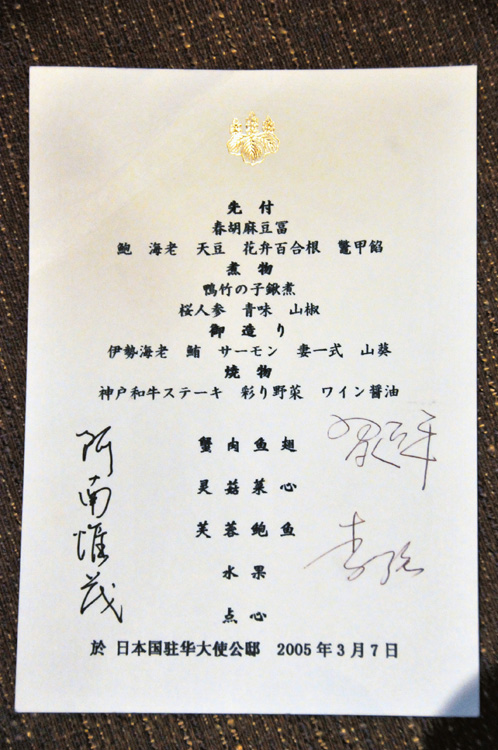 先付
春胡麻豆冨
鮑　海老　天豆　花弁百合根　鼈甲餡
煮物
鴨竹の子鍬煮
桜人参　青味　山椒
御造り
伊勢海老　鮪　サーモン　妻一式　山葵
焼物
神戸和牛ステーキ　彩り野菜　ワイン醤油
蟹肉鱼翅
灵菇菜心
芙蓉鲍鱼
水果
点心
阿南惟茂
於 日本国驻华大使公邸　2005年3月7日